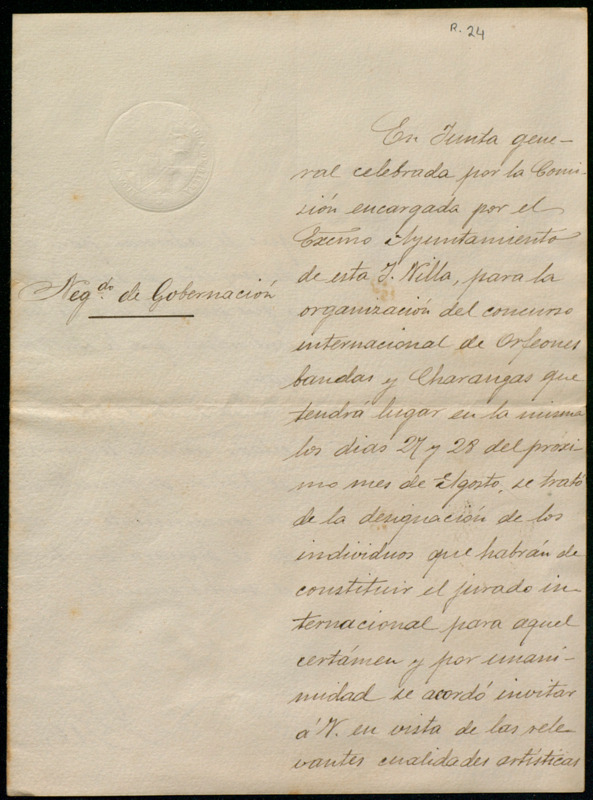 R. 24
Neg.do de Gobernación
En Junta gene-
ral celebrada por la Comi-
sión encargada por el
Excmo Ayuntamiento
de esta I. Villa, para la
organización del concurso
internacional de Orfeones
bandas y Charangas que
tendrá lugar en la misma
los días 27 y 28 del próxi-
mo mes de Agosto, se trató
de la designación de los
individuos que habrán de
constituir el jurado in-
ternacional para aquel
certámen y por unani-
midad se acordó invitar
á V. en vista de las rele-
vantes cualidades artísticas